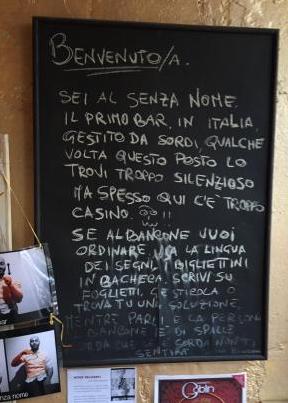 BENVENUTO/A.
SEI AL SENZA NOME.
IL PRIMO BAR, IN ITALIA,
GESTITO DA SORDI, QUALCHE
VOLTA QUESTO POSTO LO
TROVI TROPPO SILENZIOSO
MA SPESSO QUI C'È TROPPO
CASINO. !!
SE AL BANCONE VUOI
ORDINARE USA LA LINGUA
DEI SEGNI, I BIGLIETTINI
IN BACHECA, SCRIVI SU
FOGLIETTI, GESTICOLA O
TROVA TU UNA SOLUZIONE.
MENTRE PARLI E LA PERSONA
AL BANCONE È DI SPALLE
CORDA CHE È SORDA NON TI
SENTIRÀ
nza nome
Goblin